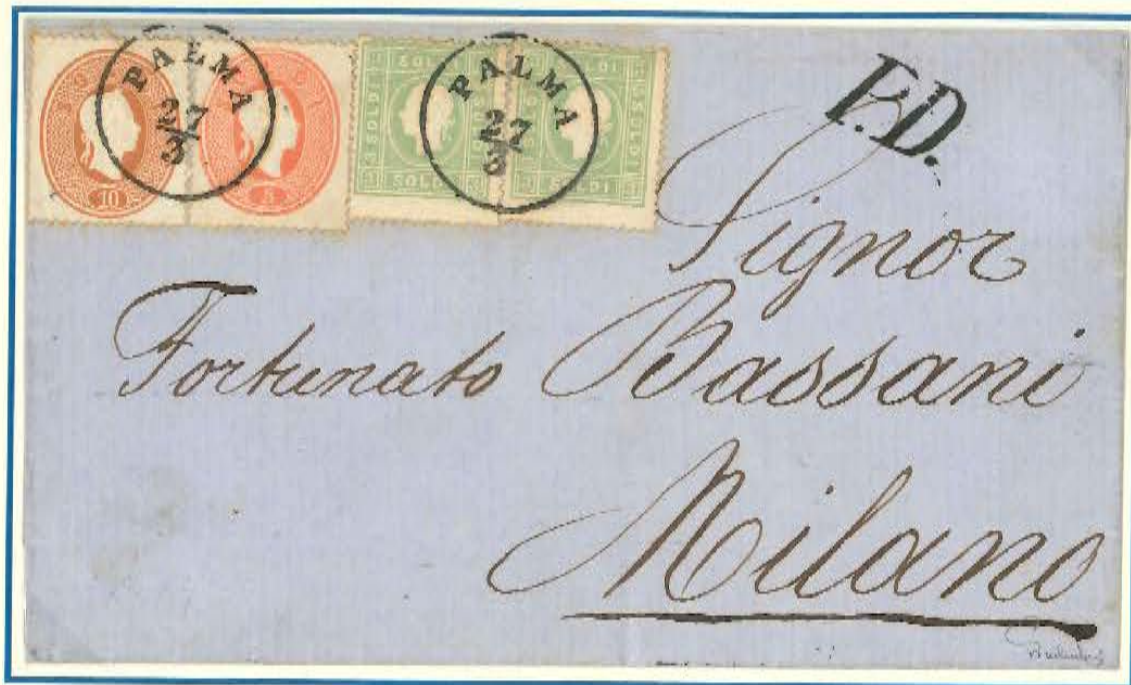 PALMA
27
3
PALMA
27
3
10
5
3 SOLDI
SOLDI
SOLDI
SOLDI
P.D.
Signor
Fortunato Bassani
Milano